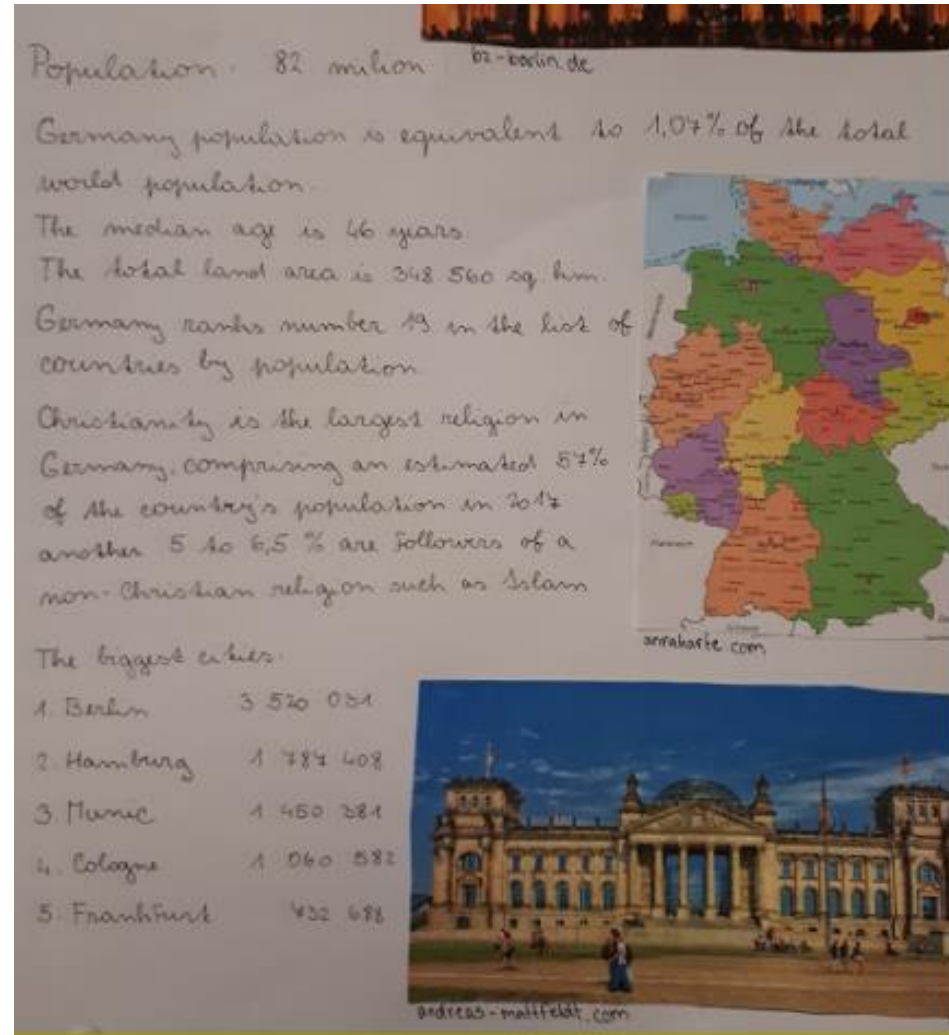 bz-berlin.de
Population. 82 milion
Germany population is equivalent to 1,07% of the total
world population.
The median age is 46 years
The total land area is 348 560 sq km.
Germany ranks number 19 in the list of
countries by population
Christianity is the largest religion in
Germany, comprising an estimated 57%
of the country's population in 2017
another 5 to 6,5 % are followers of a
non-Christian religion such as Islam
annakarte.com
The biggest cities.
1. Berlin 3 520 031
2. Hamburg 1 787 408
3. Munic 1 450 381
4. Cologne 1 060 582
5. Frankfurt 732 688
andreas-mattfeldt.com